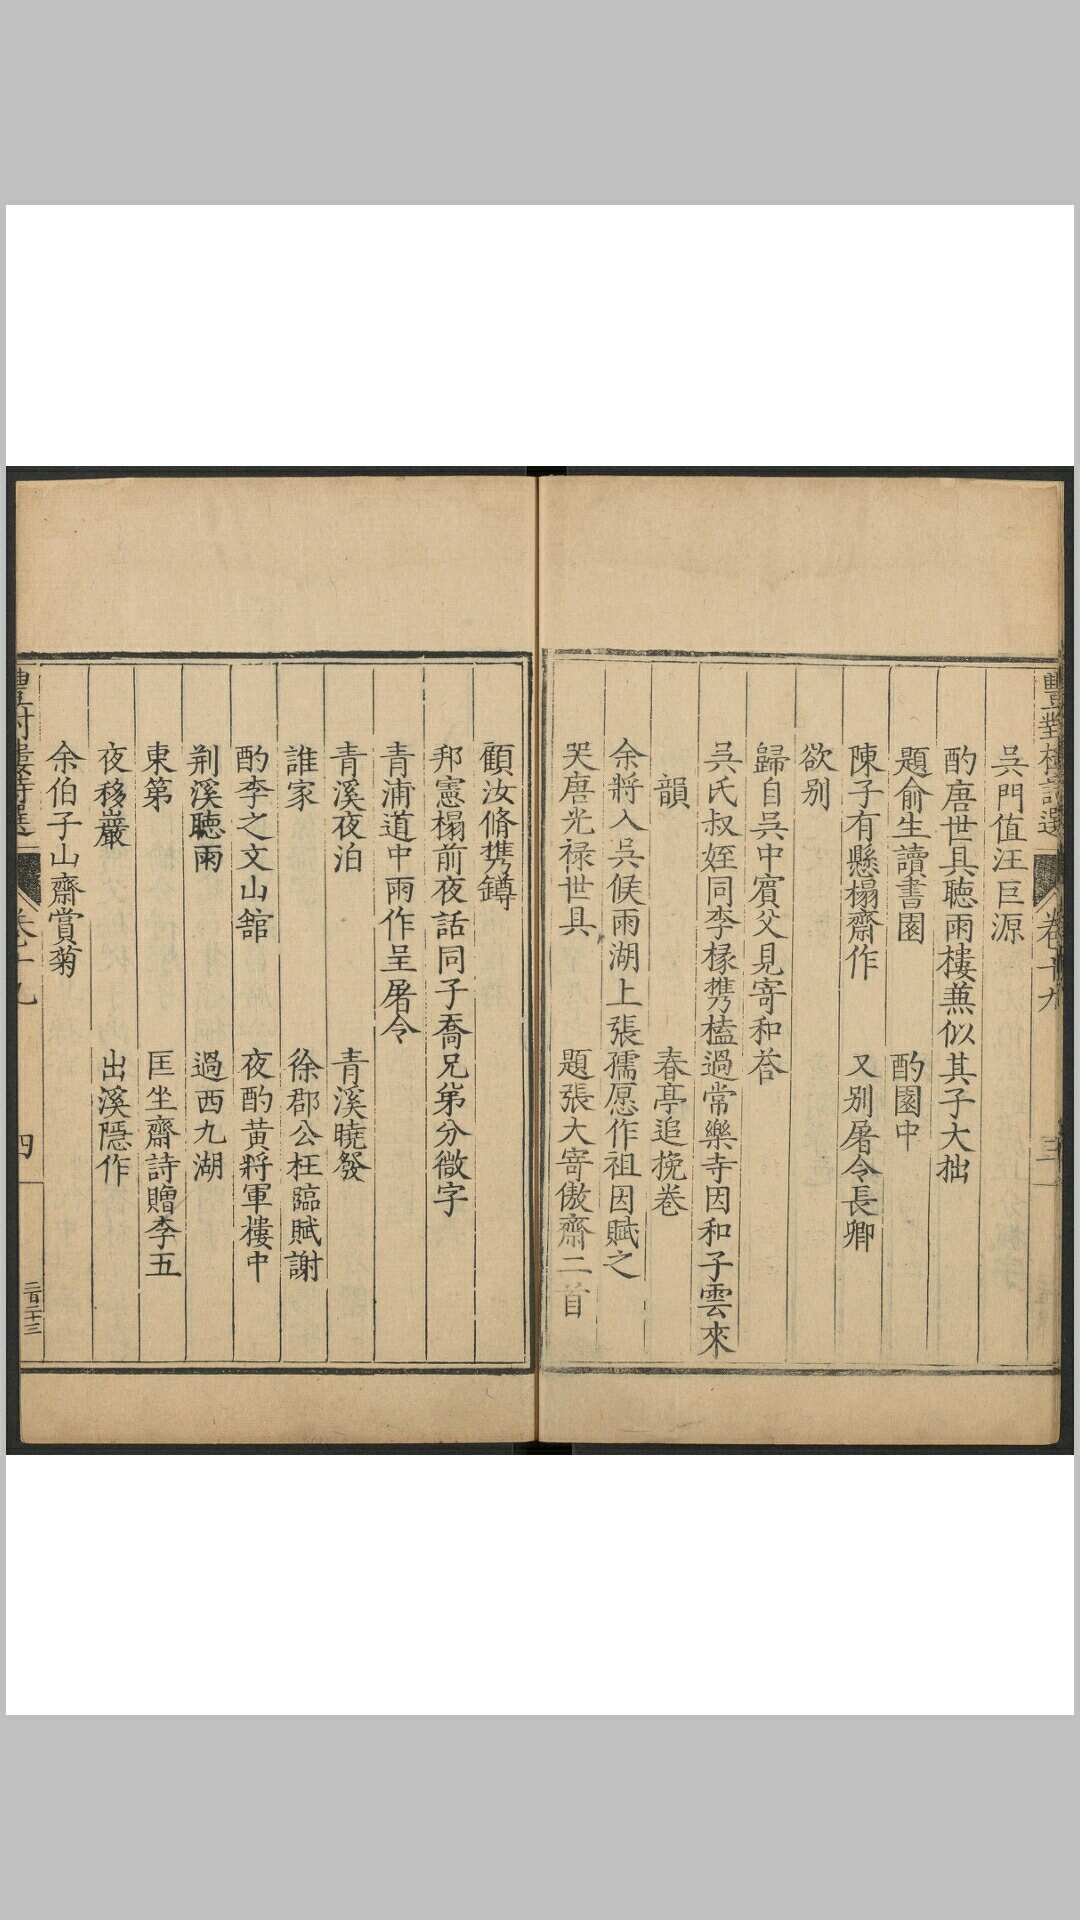 豐對樓詩選
卷十九
三
吳門值汪巨源
酌唐世具聽雨樓蕪似其子大拙
題俞生讀書園
酌園中
陳子有懸榻齋作
又别屠令長卿
欲别
歸自吳中賓父見寄和荅
吳氏叔姪同李掾携榼過常樂寺因和子雲來
韻
春亭追挽卷
余將入吳候雨湖上張孺愿作祖因賦之
哭唐光禄世具
題張大寄傲齋二首
顧汝脩携鐏
邦憲榻前夜話同子喬兄弟分微字
青浦道中雨作呈屠令
青溪夜泊
青溪曉發
誰家
徐郡公枉臨賦謝
酌李之文山舘
夜酌黄將軍樓中
荆溪聽雨
過西九湖
東第
匡坐齋詩贈李五
夜移巖
出溪隱作
余伯子山齋賞菊
豐對樓詩選
卷十九
四
二百二十三